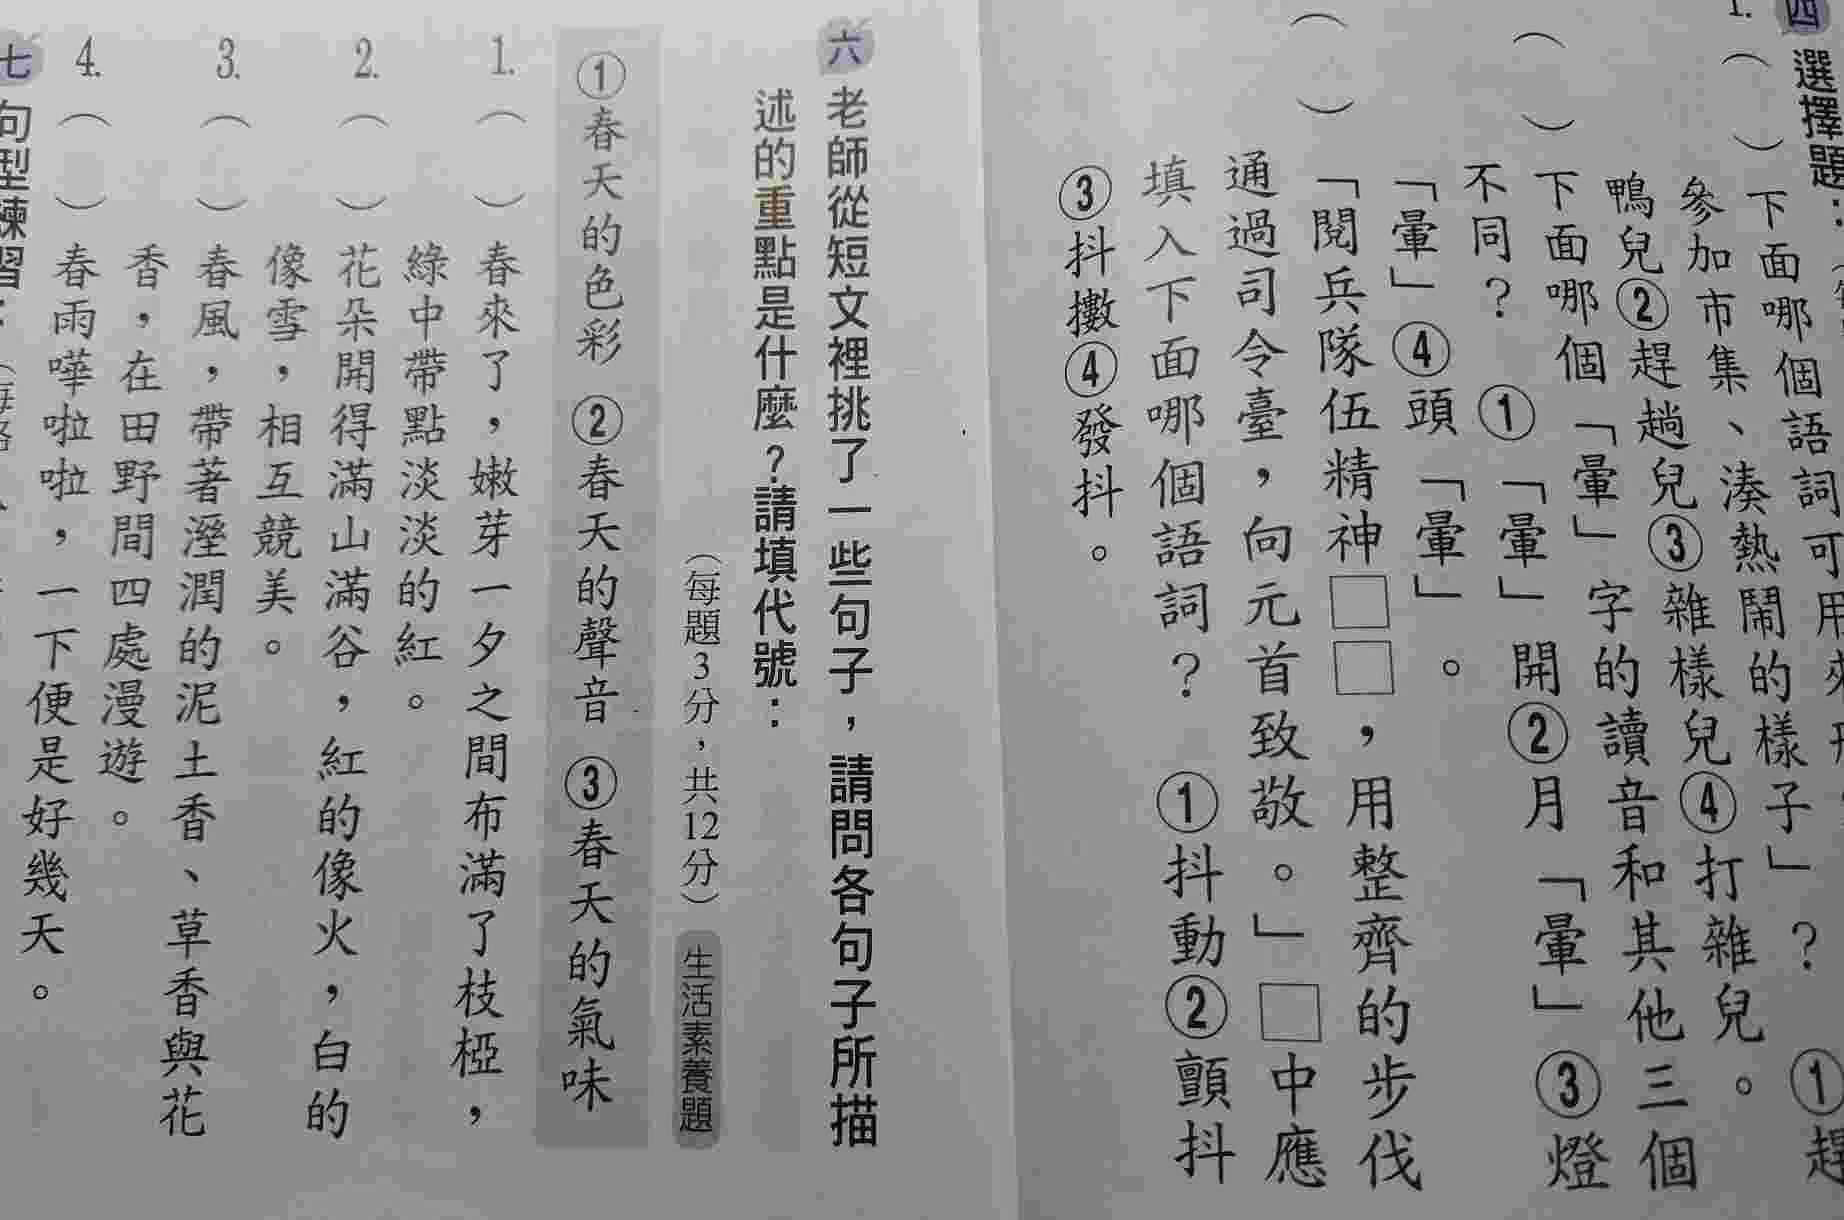 四 選擇題：
1.（ ）下面哪個語詞可用來形
參加市集、湊熱鬧的樣子」？ ①趕
鴨兒②趕趟兒③雜樣兒④打雜兒。
（ ）下面哪個「暈」字的讀音和其他三個
不同？ ①「暈」開②月「暈」③燈
「暈」④頭「暈」。
（ ）「閱兵隊伍精神□□，用整齊的步伐
通過司令臺，向元首致敬。」□中應
填入下面哪個語詞？ ①抖動②顫抖
③抖擻④發抖。
六 老師從短文裡挑了一些句子，請問各句子所描
述的重點是什麼？請填代號：
（每題3分，共12分） 生活素養題
①春天的色彩 ②春天的聲音 ③春天的氣味
1.（ ）春來了，嫩芽一夕之間布滿了枝椏，
綠中帶點淡淡的紅。
2.（ ）花朵開得滿山滿谷，紅的像火，白的
像雪，相互競美。
3.（ ）春風，帶著溼潤的泥土香、草香與花
香，在田野間四處漫遊。
4.（ ）春雨嘩啦啦，一下便是好幾天。
七 句型練習：